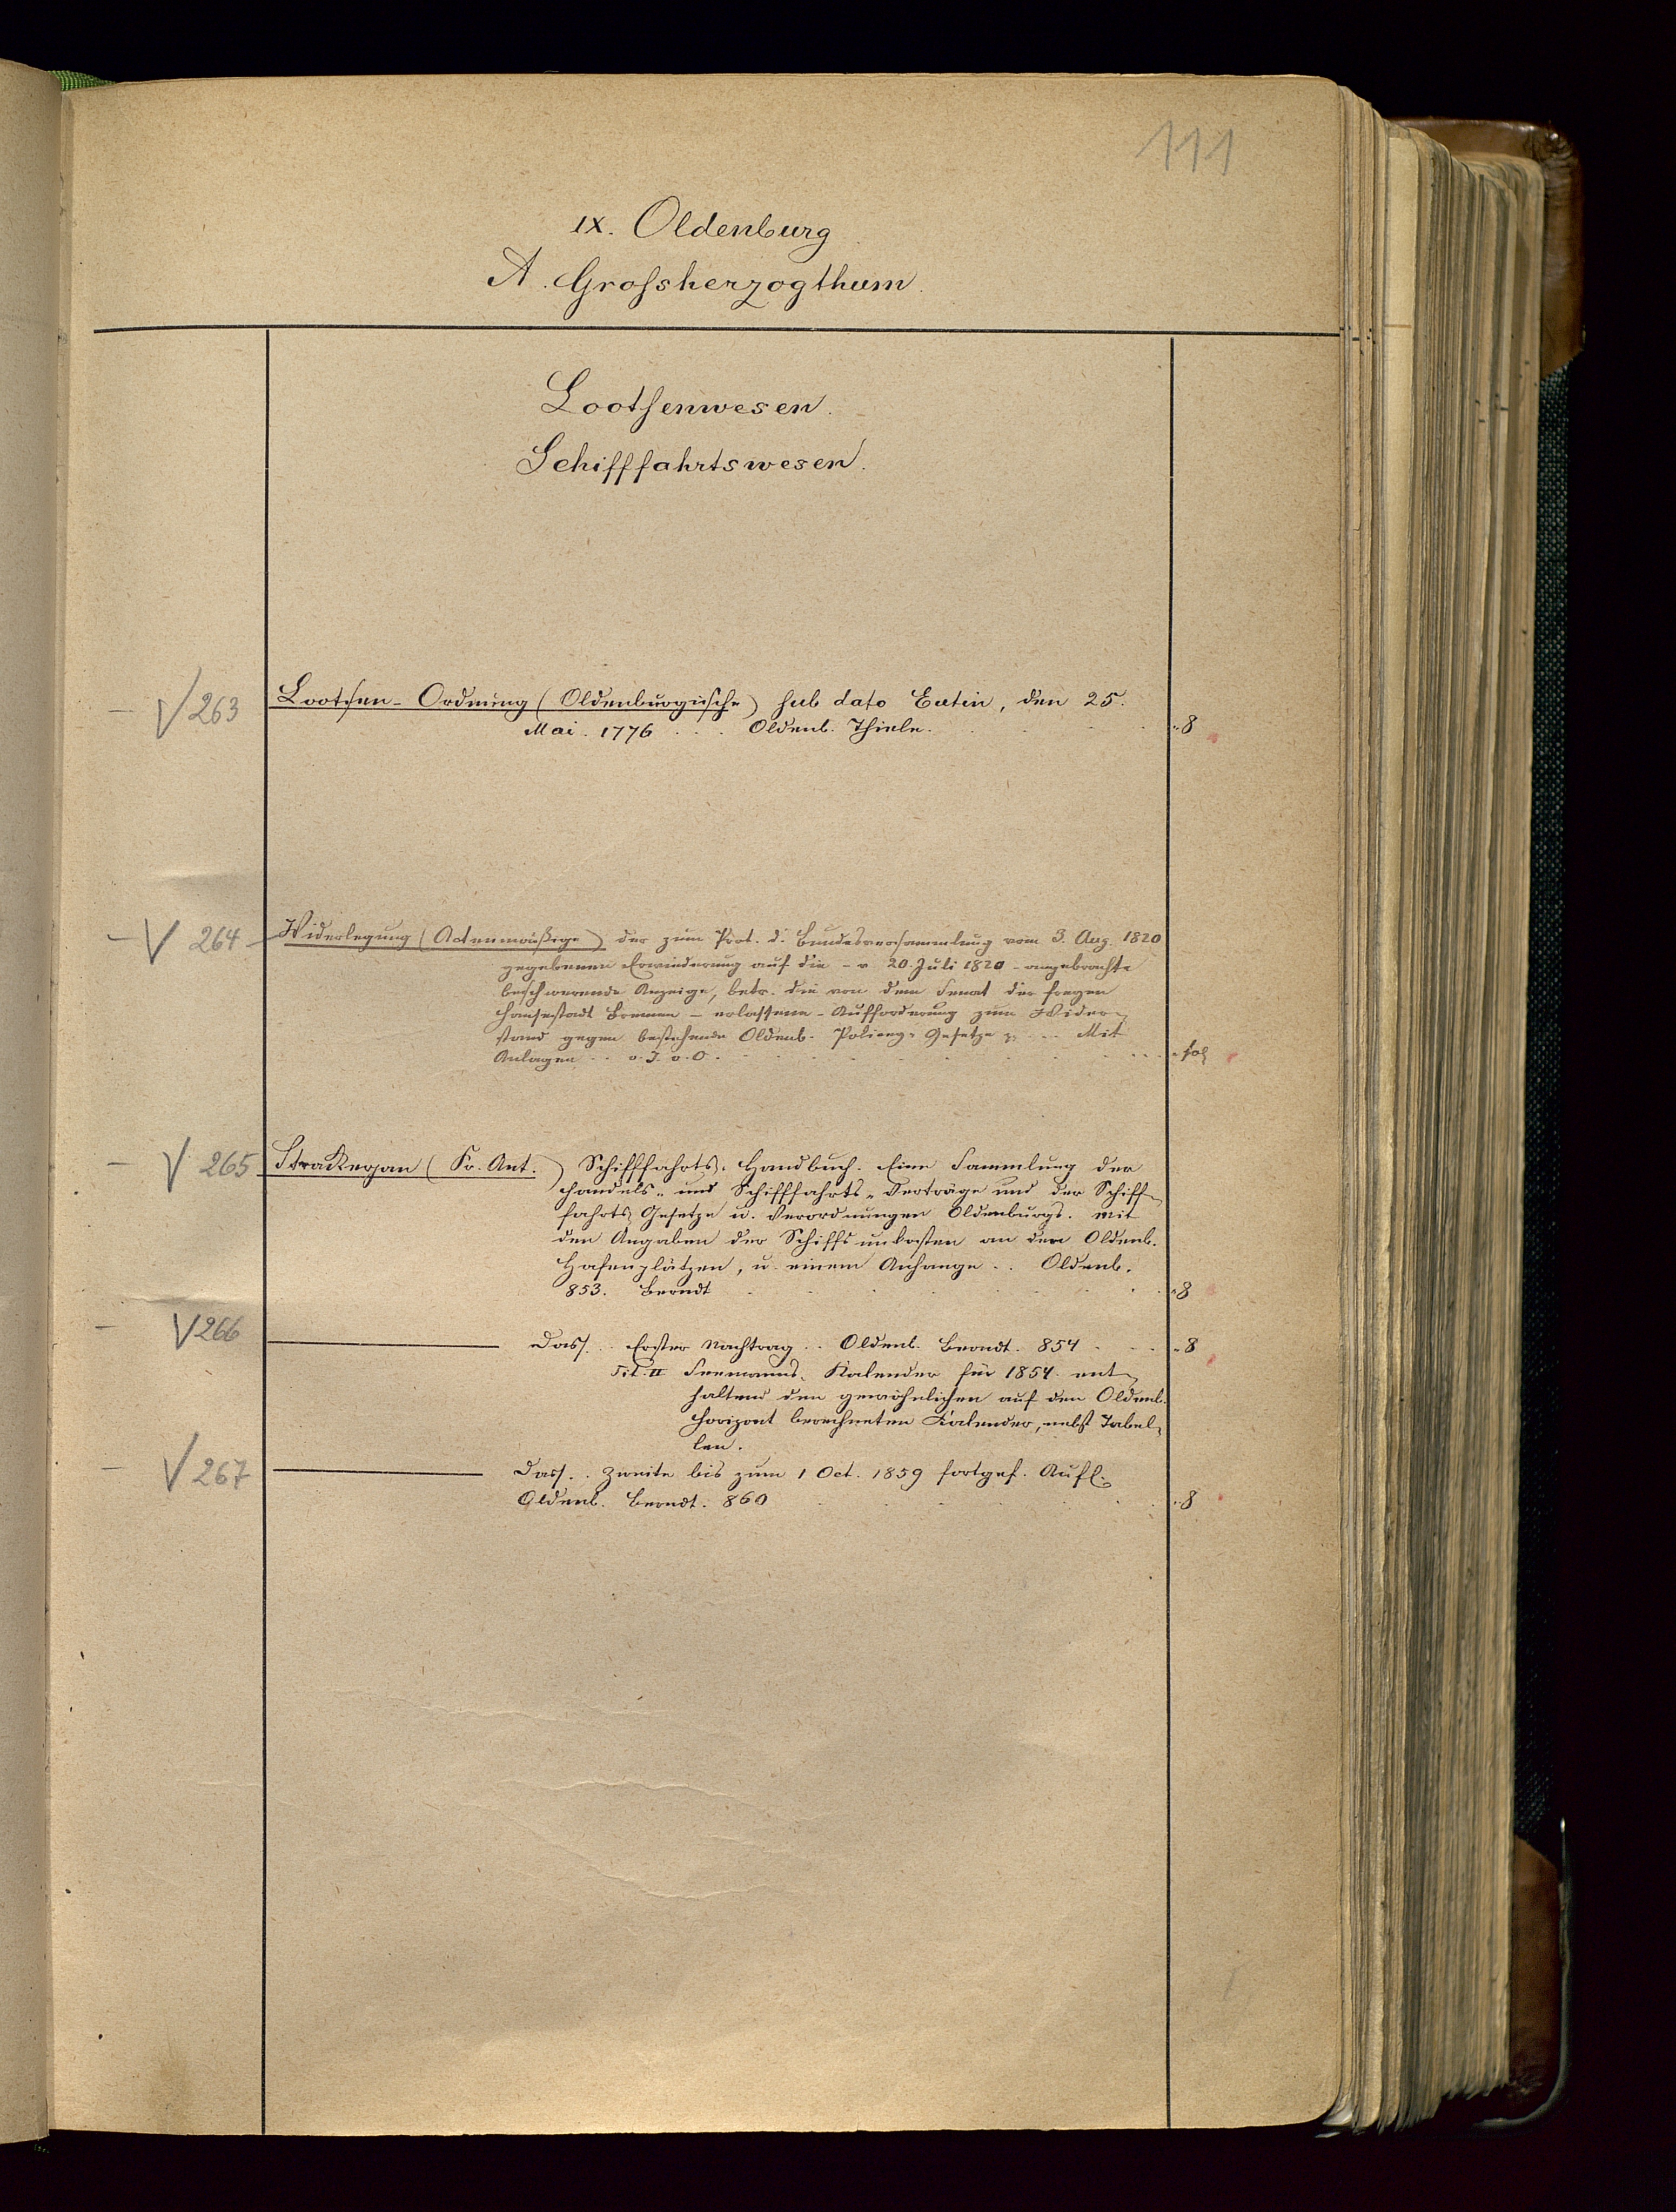 111
IX. Oldenburg
A. Grofsherzogthum.
Lootsenwesen.
Schifffahrtswesen.
– V 263 Lootsen-Ordnung (Oldenburgische) sub dato Eutin, den 25.
Mai. 1776 . . . Oldenb. Thiele. 8
– V 264 Widerlegung (Actenmäßige) der zum Prot. d. Bundesversammlung vom 3. Aug. 1820
gegebenen Erwiederung auf die – v. 20. Juli 1820 – angebrachte
beschwerende Anzeige, betr. die von dem Senat der freyen
Hansestadt Bremen – erlassene – Aufforderung zum Wider-
stand gegen bestehende Oldenb. Policey-Gesetze . . . Mit
Anlagen . . o. J. o. O. fol
– V 265 Strackerjan (Fr. Ant.) Schifffahrts-Handbuch. Eine Sammlung der
Handels- und Schifffahrts-Verträge und der Schiff-
fahrts Gesetze u. Verordnungen Oldenburgs. Mit
den Angaben der Schiffsunkosten an den Oldenb.
Hafenplätzen, u. einem Anhange . . Oldenb.
853. Berndt 8
– V 266 — Dass. . . Erster Nachtrag . . Oldenb. Berndt. 854 8
Tit. II Seemanns-Kalender für 1854. ent-
haltend den gewöhnlichen auf den Oldenb.
Horizont berechneten Kalender, nebst Tabel-
len.
– V 267 — Dass. . . Zweite bis zum 1 Oct. 1859 fortges. Aufl.
Oldenb. Berndt. 860 8